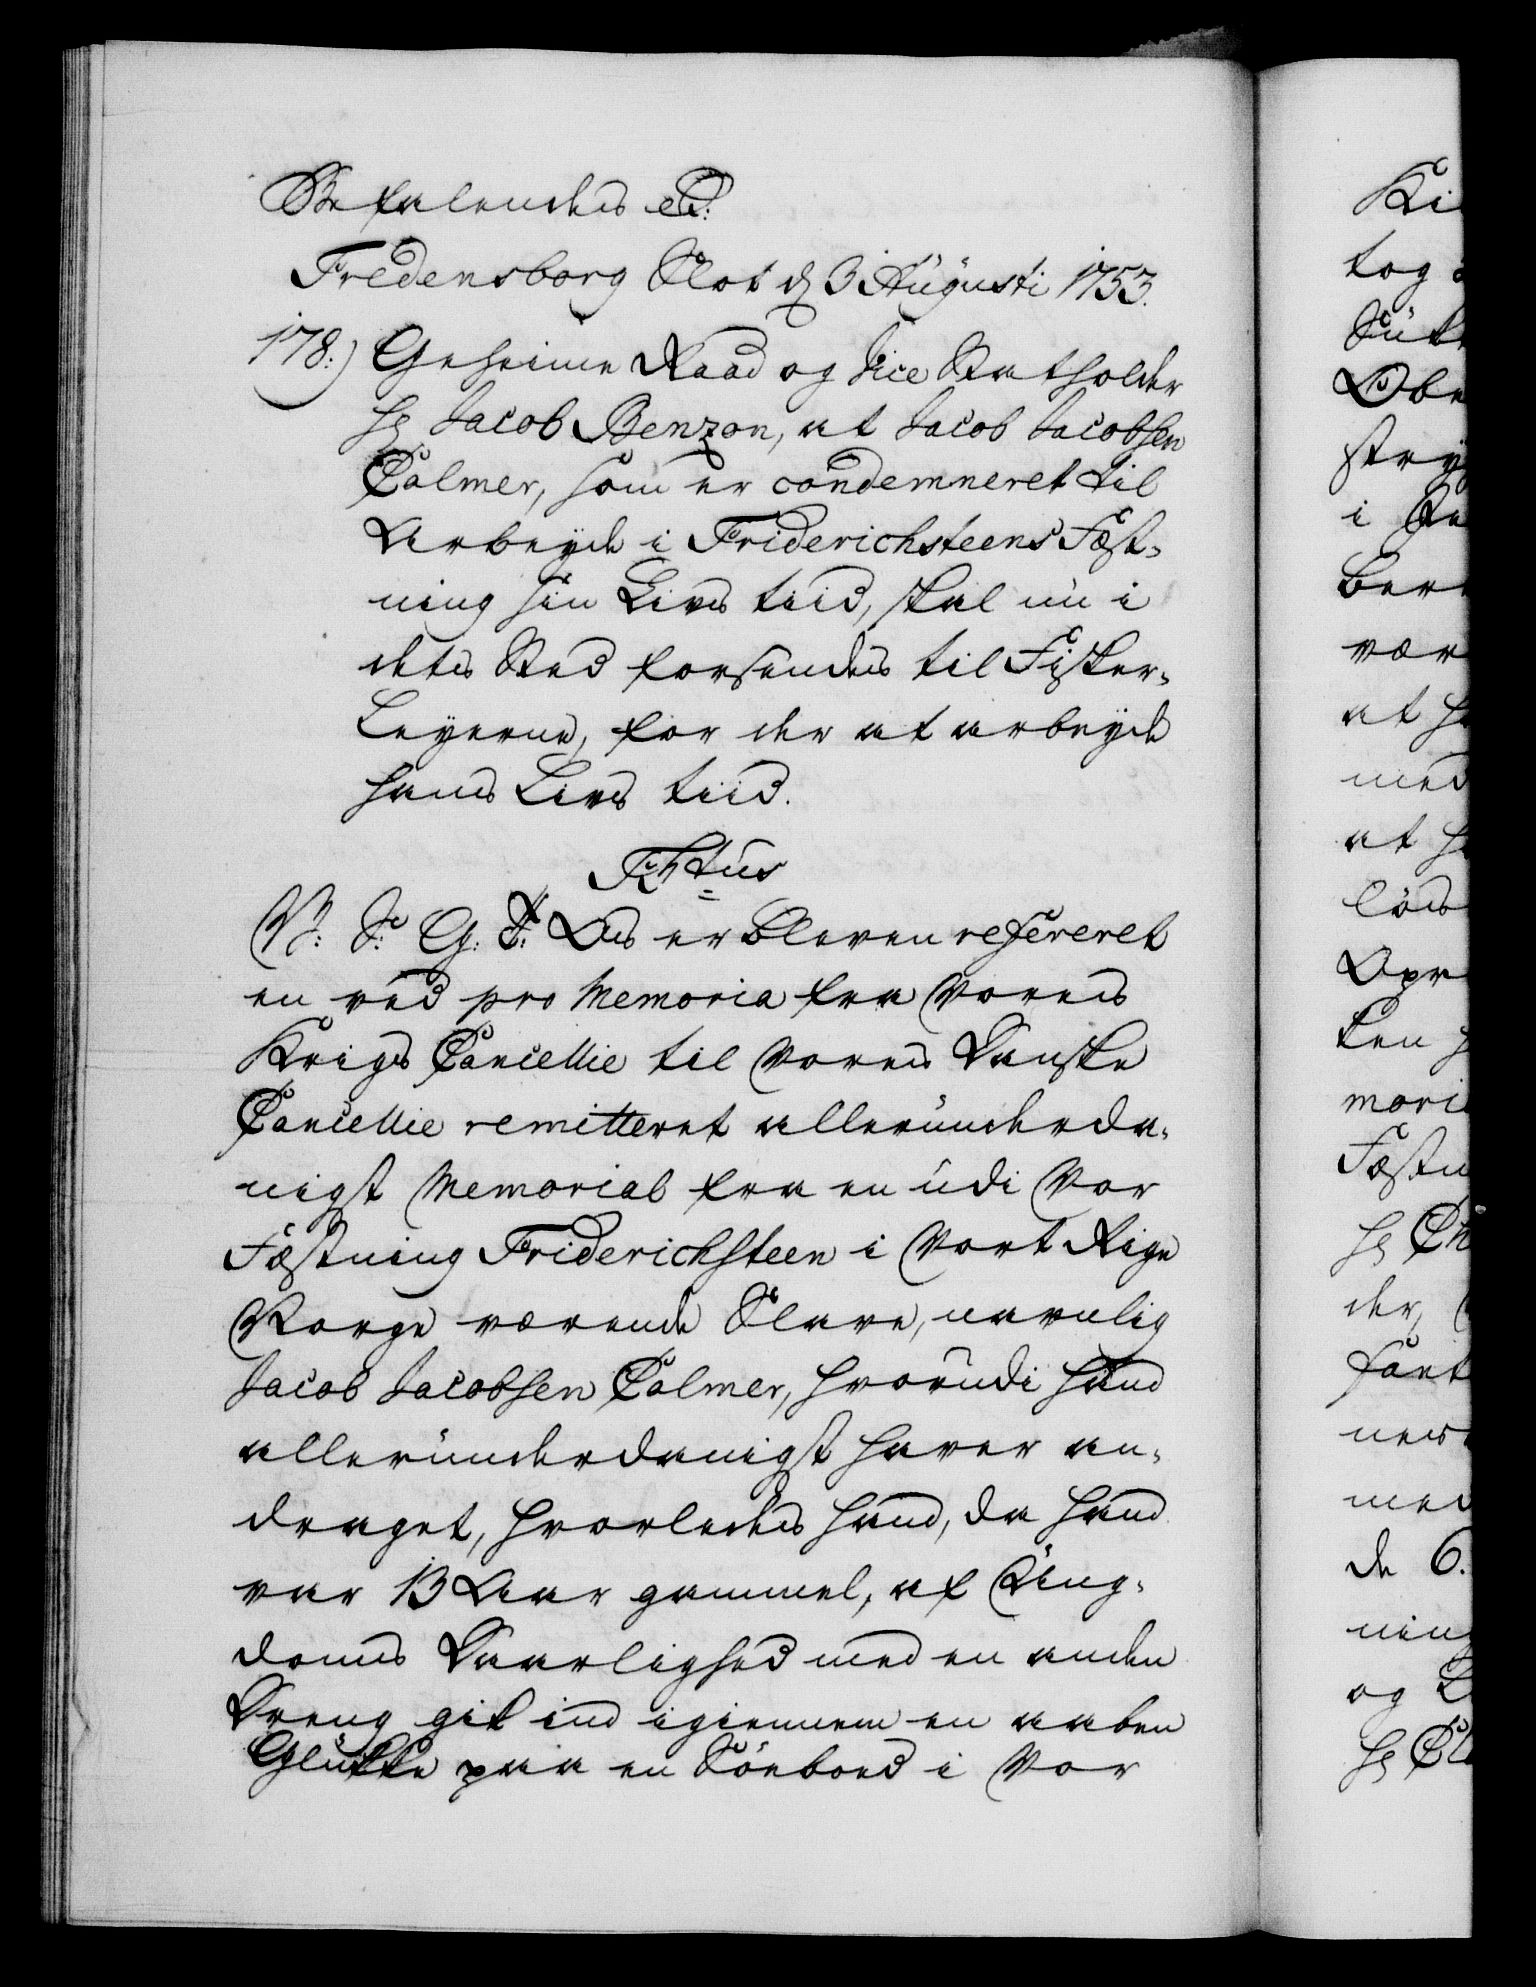 Befalendes etc:
Fredensborg Slot d 3 Augusti 1753.
178:) Geheime Raad og Vice Statholder
Hr Jacob Benzon, at Jacob Jacobsen
Calmer, som er condemneret til
Arbeyde i Friderichsteens Fæst-
ning sin Lives tiid, skal nu i
dets Sted forsendes til Fisker-
Leyerne, for der at arbeyde
hans Lives tiid.
F 5tus
V: S: G: T: Os er bleven refereret
en ved pro Memoria fra Vores
Krigs Cancellie til Vores Danske
Cancellie remitteret allerunderda-
nigst Memorial fra en udi Vor
Fæstning Friderichsteen i Vort Rige
Norge værende Slave, navnlig
Jacob Jacobsen Calmer, hvorudi hand
allerunderdanigst haver an-
draget, hvorledes hand, da hand
var 13 Aar gammel, af Ung-
doms Daarlighed med en anden
Dreng gik ind igiennem en aaben
Glukke paa en Söeboed i Vor
Ki
tog
Obe
stry
i
ber
vær
at
med
at
löes
Opr
ken
mori
Fæstn
Hr Ch
der,
fört
med
de 6.
ning
og